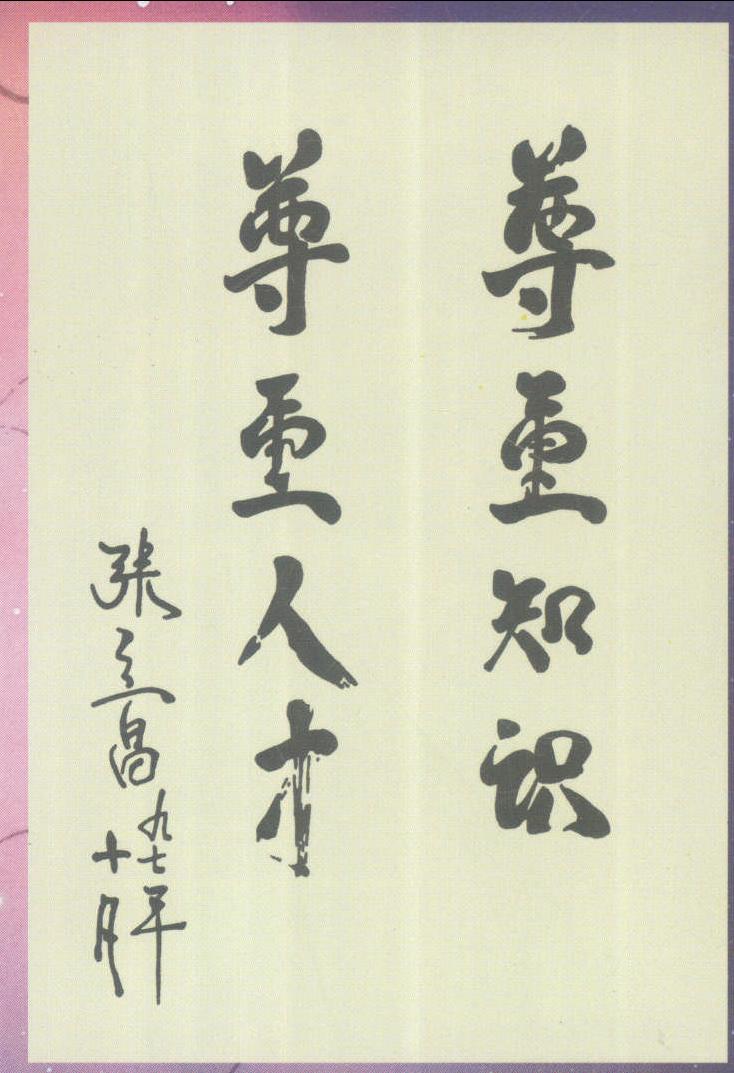 尊重知识
尊重人才
张立昌
九七年
十月